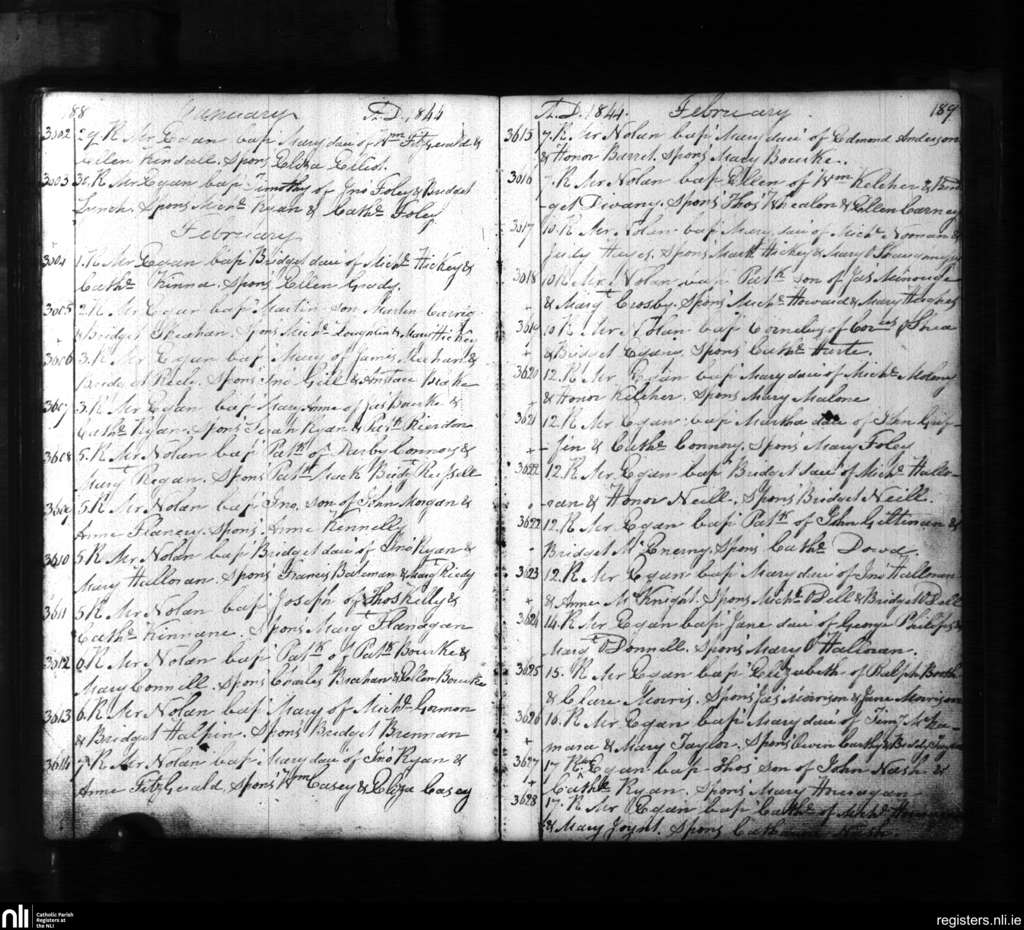 188 January A.D. 1844
3602 29. R Mr Egan bap Mary dau of Wm FitzGerald &
Ellen Kendall. Spons Eliza Elliot.
3603 30. R Mr Egan bap Timothy of Jno Foley & Bridget
Lynch. Spons Michl Ryan & Cathe Foley
February
3604 1. R Mr Egan bap Bridget dau of Michl Hickey &
Cathe Kinna. Spons Ellen Grady.
3605 2. R Mr Egan bap Martin son Martin Carrig
& Bridget Sheahan. Spons Michl Loughlin & Mary Hickey
3606 3. R Mr Egan bap Mary of James Meehan &
Bridget Spons Jno Gill & Anstace
3607 3. R Mr Egan bap Mary Anne of Jas Bourke &
Cathe Ryan. Spons Ryan & Riordon
3608 5. R Mr Nolan bap Patk of Darby Connors &
Margt Regan. Spons Patk Mack Bridgt
3609 5. R Mr Nolan bap Jno, son of John Morgan &
Anne Spons Anne Kennelly
3610 5. R Mr Nolan bap Bridget dau of Jno Ryan &
Mary Halloran. Spons Francis Bateman & Margt Reidy
3611 5. R Mr Nolan bap Joseph of Thos Kelly &
Cathe Kinnane. Spons Margt Flanagan
3612 6. R Mr Nolan bap Patk of Patk Bourke &
Mary Connell. Spons Charles & Ellen Bourke
3613 6. R Mr Nolan bap Mary of Michl Gormon
& Bridget Halpin. Spons Bridget Brennan
3614 7. R Mr Nolan bap Mary dau of Jno Ryan &
Anne FitzGerald. Spons Wm Casey & Eliza Casey
A.D. 1844. February 189
3615 7. R Mr Nolan bap Mary dau of Edmond Anderson
& Honor Barret. Spons Mary Bourke.
3616 7. R Mr Nolan bap Ellen of Wm Kelcher & Brid
get Divany. Spons Thos Whealon & Ellen Carney
3617 10. R Mr Nolan bap Mary dau of Michl Noonan &
Judy Hayes. Spons Mark Hickey & Margt
3618 10. R Mr Nolan bap Patk son of Jas
& Margt Crosby. Spons Michl Howard & Mary Hughes
3619 10. R Mr Nolan bap Cornelius of Corns Shea
& Bridget Egan. Spons Cathe
3620 12. R Mr Egan bap Mary dau of Michl Molony
& Honor Kelcher. Spons Mary Malone
3621 12. R Mr Egan bap Martha dau of John Grif
fin & Cathe Connors. Spons Mary Foley
3622 12. R Mr Egan bap Bridget dau of Michl Hallo
ran & Honor Neill. Spons Bridget Neill.
3622 12. R Mr Egan bap Patk of John &
Bridget McEnerny. Spons Cathe Dowd
3623 12. R Mr Egan bap Mary dau of Jno Halloran
& Anne McKnight. Spons Michl ODell & Bridgt ODell
3624 14. R Mr Egan bap Jane dau of George Philips &
Margt ODonnell. Spons Mary OHalloran.
3625 15. R Mr Egan bap Elizabeth of Ralph Booth
& Clare Morris. Spons Jas Morrison & Jane Morrison
3626 16. R Mr Egan bap Mary dau of Timy McNa
mara & Mary Taylor. Spons Owen Carthy & Biddy
3627 17. Revd Egan bap Thos son of John Nash &
Cathe Ryan. Spons Mary Hourigan
3628 17. R Mr Egan bap Cathe of Michl
& Mary Joynt. Spons Catharine
nli Catholic Parish
Registers at
the NLI
registers.nli.ie